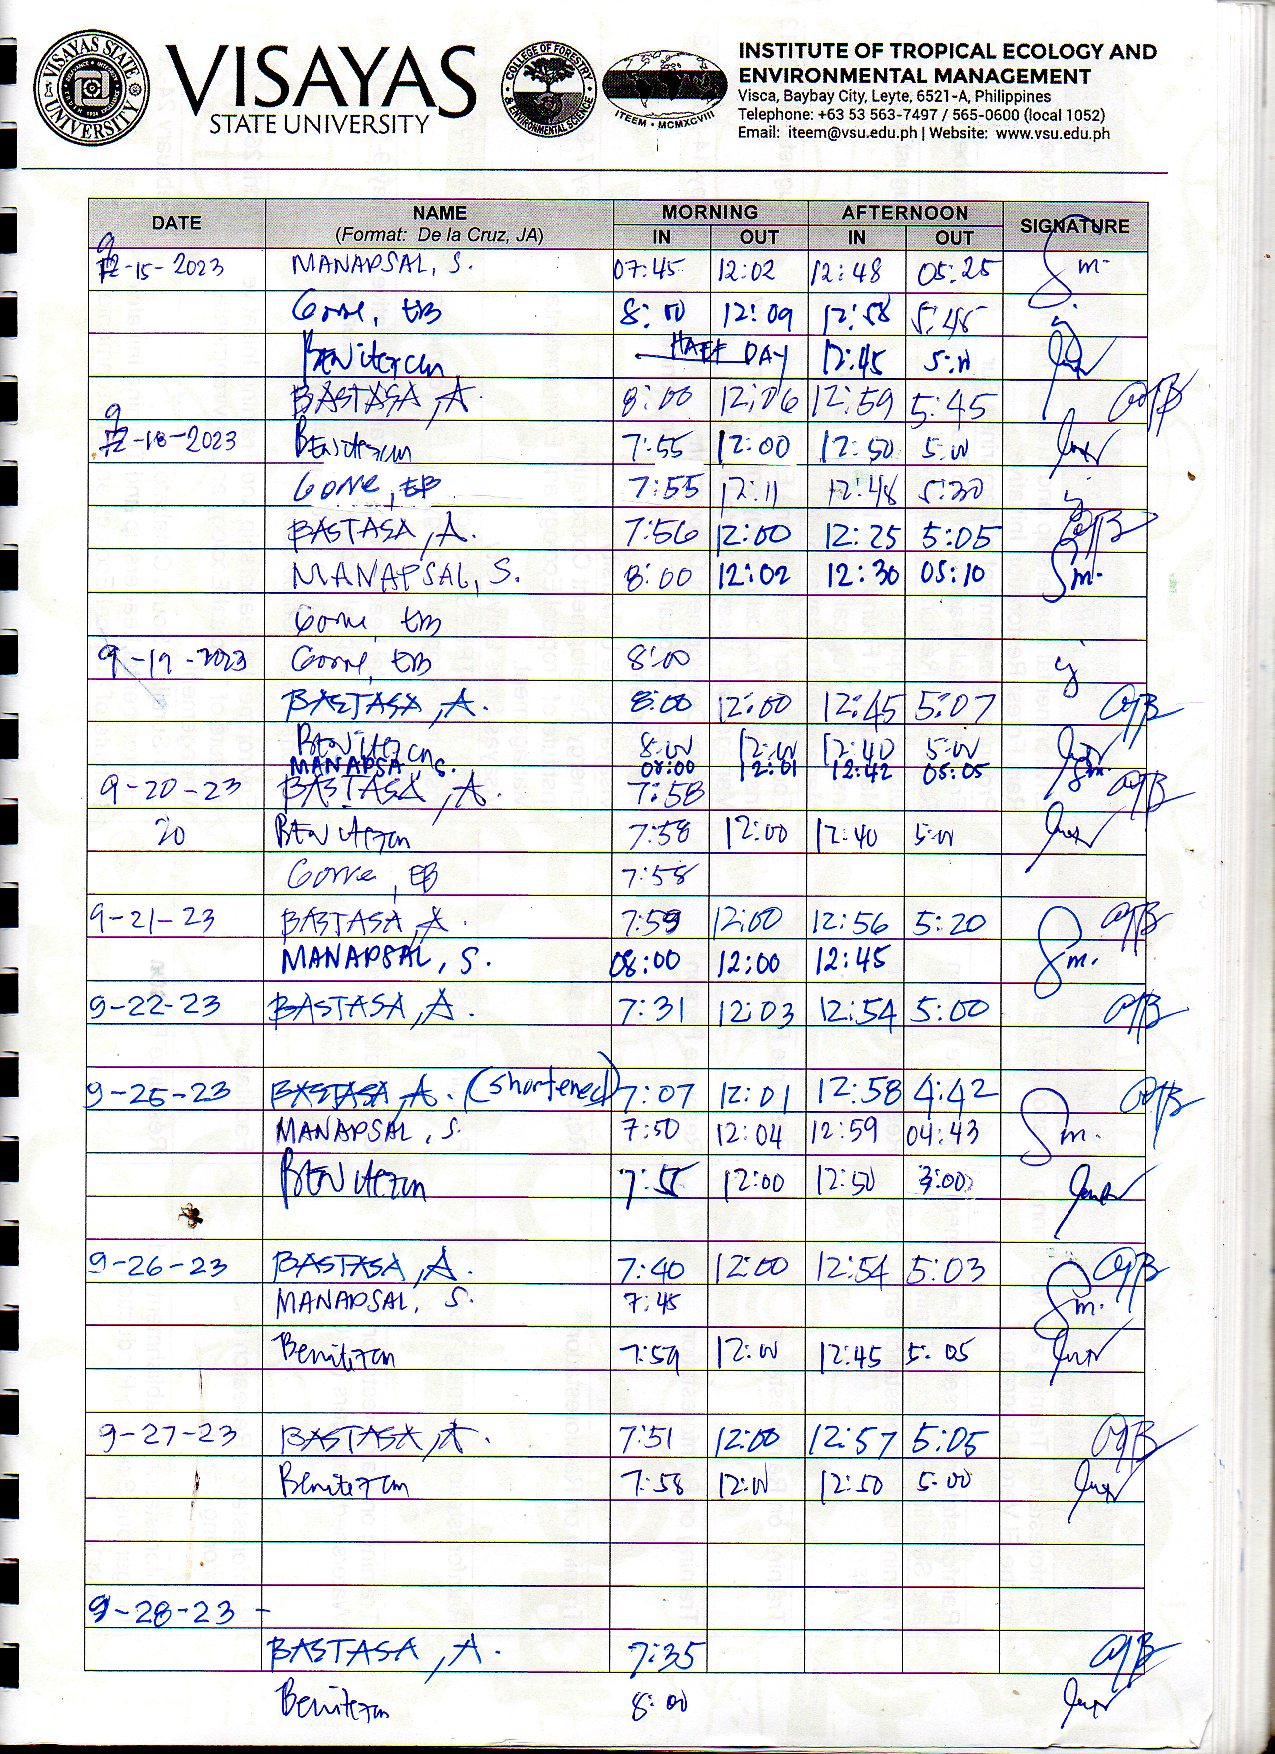 VISAYAS STATE UNIVERSITY
VISAYAS
STATE UNIVERSITY
COLLEGE OF FORESTRY & ENVIRONMENTAL SCIENCE
ITEEM • MCMXCVIII
INSTITUTE OF TROPICAL ECOLOGY AND
ENVIRONMENTAL MANAGEMENT
Visca, Baybay City, Leyte, 6521-A, Philippines
Telephone: +63 53 563-7497 / 565-0600 (local 1052)
Email: iteem@vsu.edu.ph | Website: www.vsu.edu.ph
DATE NAME MORNING AFTERNOON SIGNATURE
(Format: De la Cruz, JA) IN OUT IN OUT
9-15-2023 MANAPSAL, S. 07:45 12:02 12:48 05:25 Sm.
Gorre, EB 8:00 12:09 12:58 5:45
Benitez cm HALF DAY 12:45 5:00
BASTASA, A. 8:00 12:06 12:59 5:45
9-18-2023 Benitez cm 7:55 12:00 12:50 5:00
Gorre, EB 7:55 12:11 12:48 5:30
BASTASA, A. 7:56 12:00 12:25 5:05
MANAPSAL, S. 8:00 12:02 12:30 05:10 Sm.
Gorre, EB
9-19-2023 Gorre, EB 8:00
BASTASA, A. 8:00 12:00 12:45 5:07
Benitez cm 8:00 12:00 12:40 5:00
MANAPSAL, S. 08:00 12:01 12:42 05:05 Sm.
9-20-23 BASTASA, A. 7:58
20 Benitez cm 7:58 12:00 12:40 5:00
Gorre, EB 7:58
9-21-23 BASTASA, A. 7:59 12:00 12:56 5:20
MANAPSAL, S. 08:00 12:00 12:45 Sm.
9-22-23 BASTASA, A. 7:31 12:03 12:54 5:00
9-25-23 BASTASA, A. (shortened) 7:07 12:01 12:58 4:42
MANAPSAL, S. 7:50 12:04 12:59 04:43 Sm.
Benitez cm 7:55 12:00 12:50 3:00
9-26-23 BASTASA, A. 7:40 12:00 12:54 5:03
MANAPSAL, S. 7:45 Sm.
Benitez cm 7:59 12:00 12:45 5:05
9-27-23 BASTASA, A. 7:51 12:00 12:57 5:05
Benitez cm 7:58 12:00 12:50 5:00
9-28-23 -
BASTASA, A. 7:35
Benitez cm 8:00